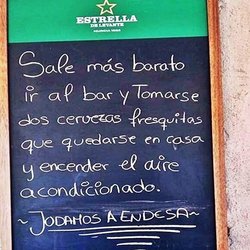 ESTRELLA
DE LEVANTE
Sale más barato
ir al bar y Tomarse
dos cervezas fresquitas
que quedarse en casa
y encender el aire
acondicionado.
~JODAMOS A ENDESA~